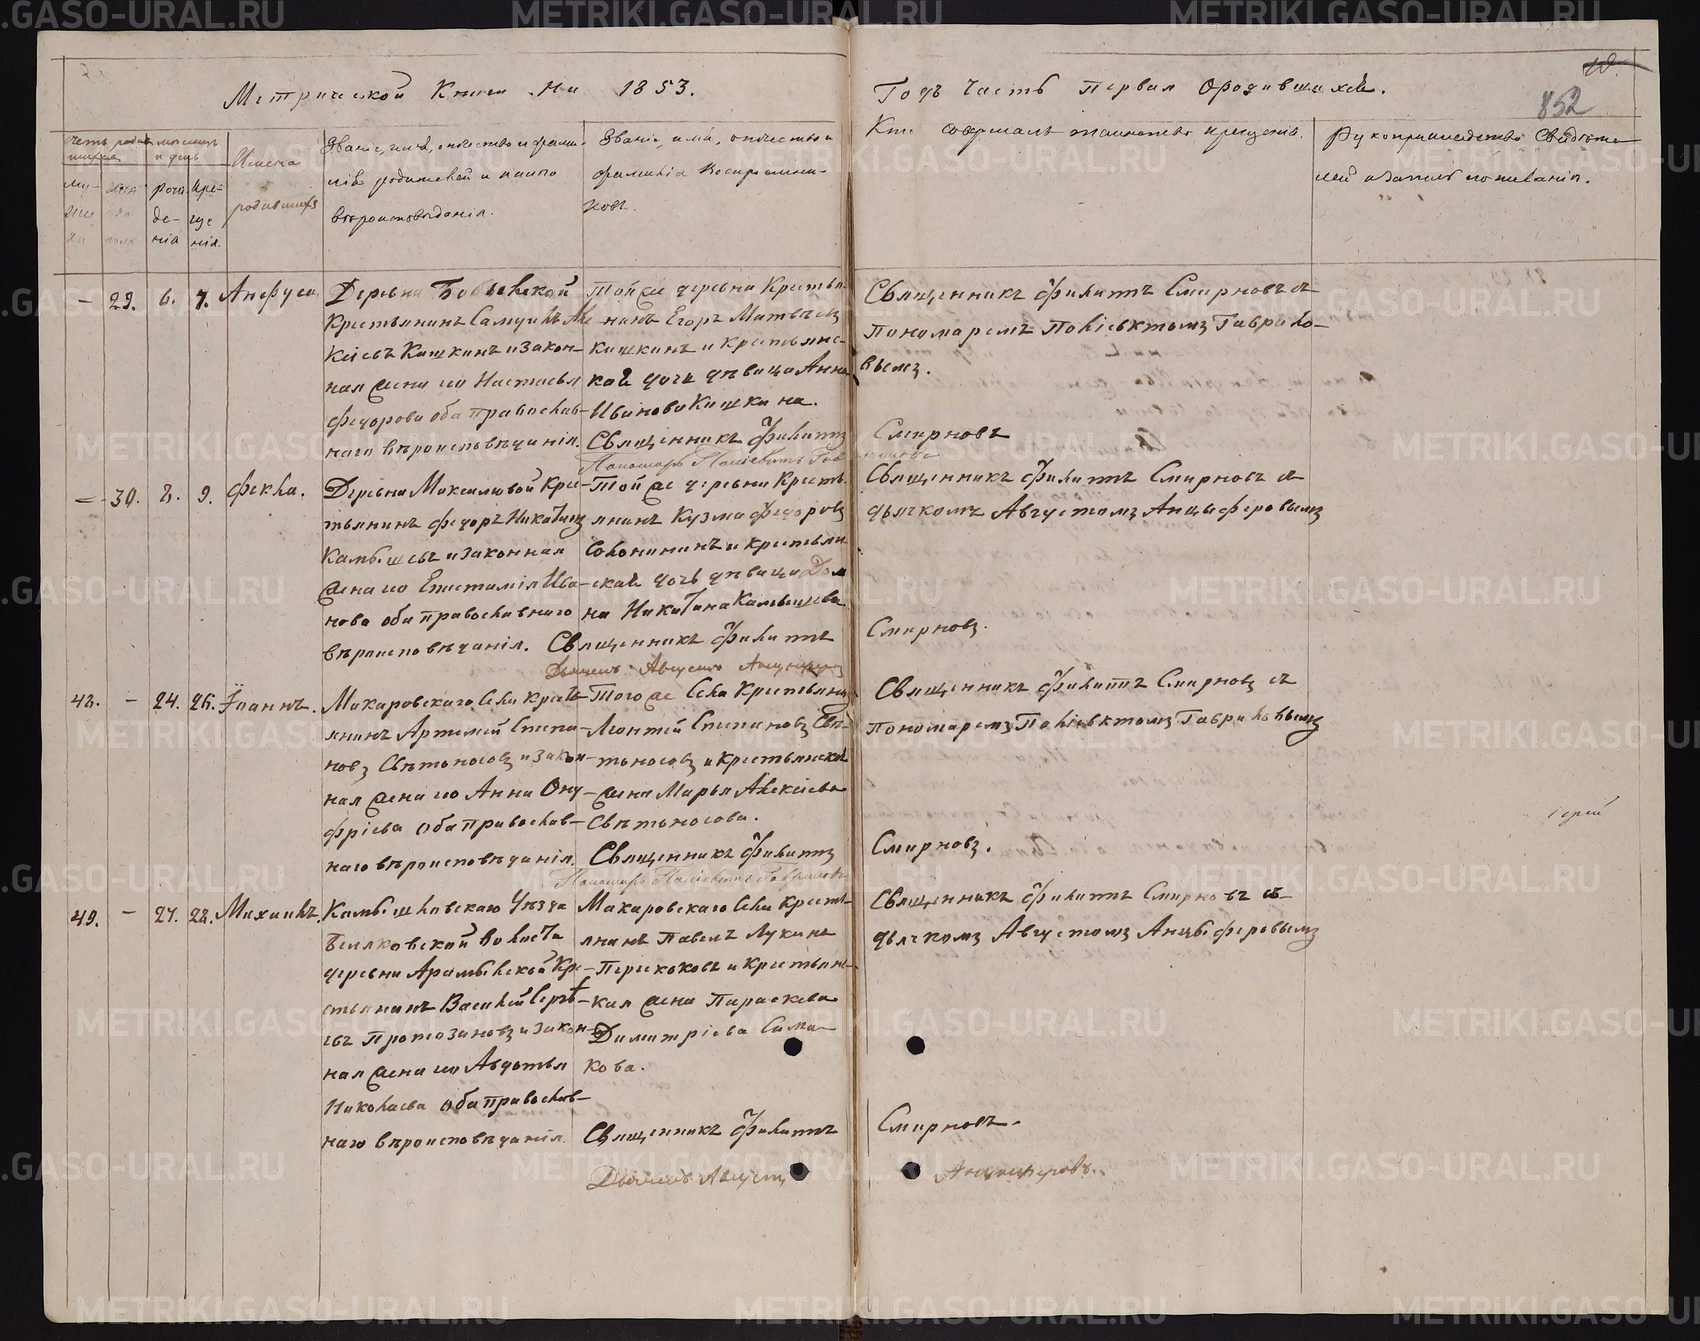 Метрической Книги На 1853.
Годъ Часть Первая О родившихся.
852
Счетъ родив
шихся
мѣсяцъ
и день
Имена
родившихъ
му-
же
ска
жен
ска
пола
рож
де-
нія
кре-
ще
нія.
Званіе, имя, отчество и фами-
лія родителей и какого
вѣроисповѣданія.
Званіе, имя, отчество и
фамилія Воспріемни-
ковъ.
Кто совершалъ таинство крещенія.
Рукоприкладство Свидѣте-
лей о записи по желанію.
– 29. 6. 7. Анфуса.
Деревни Бобыльской
Крестьянинъ Самуилъ Але
ксіевъ Кишкинъ и закон-
ная жена его Настасья
Федорова оба православ-
наго вѣроисповѣданія.
Той же деревни Крестья
нинъ Егоръ Матвѣевъ
Кишкинъ и крестьянс-
кая дочь дѣвица Анна
Иванова Кишкина.
Священникъ Филиппъ
Пономарь Поліевктъ Гав
Священникъ Филиппъ Смирновъ съ
Пономаремъ Поліевктомъ Гаврило-
вымъ.
Смирновъ
риловъ
– 30. 8. 9. Фекла.
Деревни Максимовой Кре-
тьянинъ Федоръ Никитинъ
Камышевъ и законная
жена его Епистимія Ива-
нова оба православнаго
вѣроисповѣданія.
Той же деревни Кресть
янинъ Кузма Федоровъ
Солонининъ и крестьян
ская дочь дѣвица Дом
на Никитина Камышева
Священникъ Филиппъ
Дьячекъ Августъ Анцыферовъ
Священникъ Филиппъ Смирновъ съ
дьячкомъ Августомъ Анцыферовымъ
Смирновъ.
48. – 24. 26. Іоаннъ.
Макаровскаго Села Крест
янинъ Артемій Степа-
новъ Свѣтоносовъ и закон-
ная жена его Анна Ону-
фріева оба православ-
наго вѣроисповѣданія.
Того же Села Крестьянинъ
Леонтій Степановъ Свѣ-
тоносовъ и крестьянская
жена Марья Алексіева
Свѣтоносова.
Священникъ Филиппъ
Пономарь Поліевктъ Гавриловъ
Священникъ Филиппъ Смирновъ съ
Пономаремъ Поліевктомъ Гавриловымъ
Смирновъ.
49. – 27. 28. Михаилъ.
Камышловскаго Уѣзда
Бѣляковской волости
деревни Арамыльской Кре-
стьянинъ Василій Сергѣ-
евъ Протозановъ и закон-
ная жена его Авдотья
Николаева оба православ-
наго вѣроисповѣданія.
Макаровскаго Села Кресть-
янинъ Павелъ Лукинъ
Перекоковъ и крестьянс-
кая жена Параскева
Димитріева Сима-
кова.
Священникъ Филиппъ
Дьячекъ Августъ
Священникъ Филиппъ Смирновъ съ
дьячкомъ Августомъ Анцыферовымъ
Смирновъ.
Анцыферовъ.
METRIKI.GASO-URAL.RU